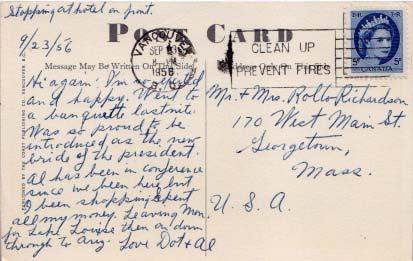 Stopping at hotel on front.
9/23/56
POST CARD
Message May Be Written On This Side
Address Only On This Side
VANCOUVER
SEP
1956
CLEAN UP
PREVENT FIRES
E II R
E II R
5¢
CANADA
5¢
Hi again: I'm so excited
and happy. Went to
a banquette last nite
Was so proud to be
introduced as the new
bride of the president.
Al has been in conference
since we been here but
I been shopping. Spent
all my money. Leaving Mon.
for Lake Louise then on down
through to Ariz. Love Dot & Al
Mr. + Mrs. Rollo Richardson
170 West Main St.
Georgetown,
Mass.
U. S. A.